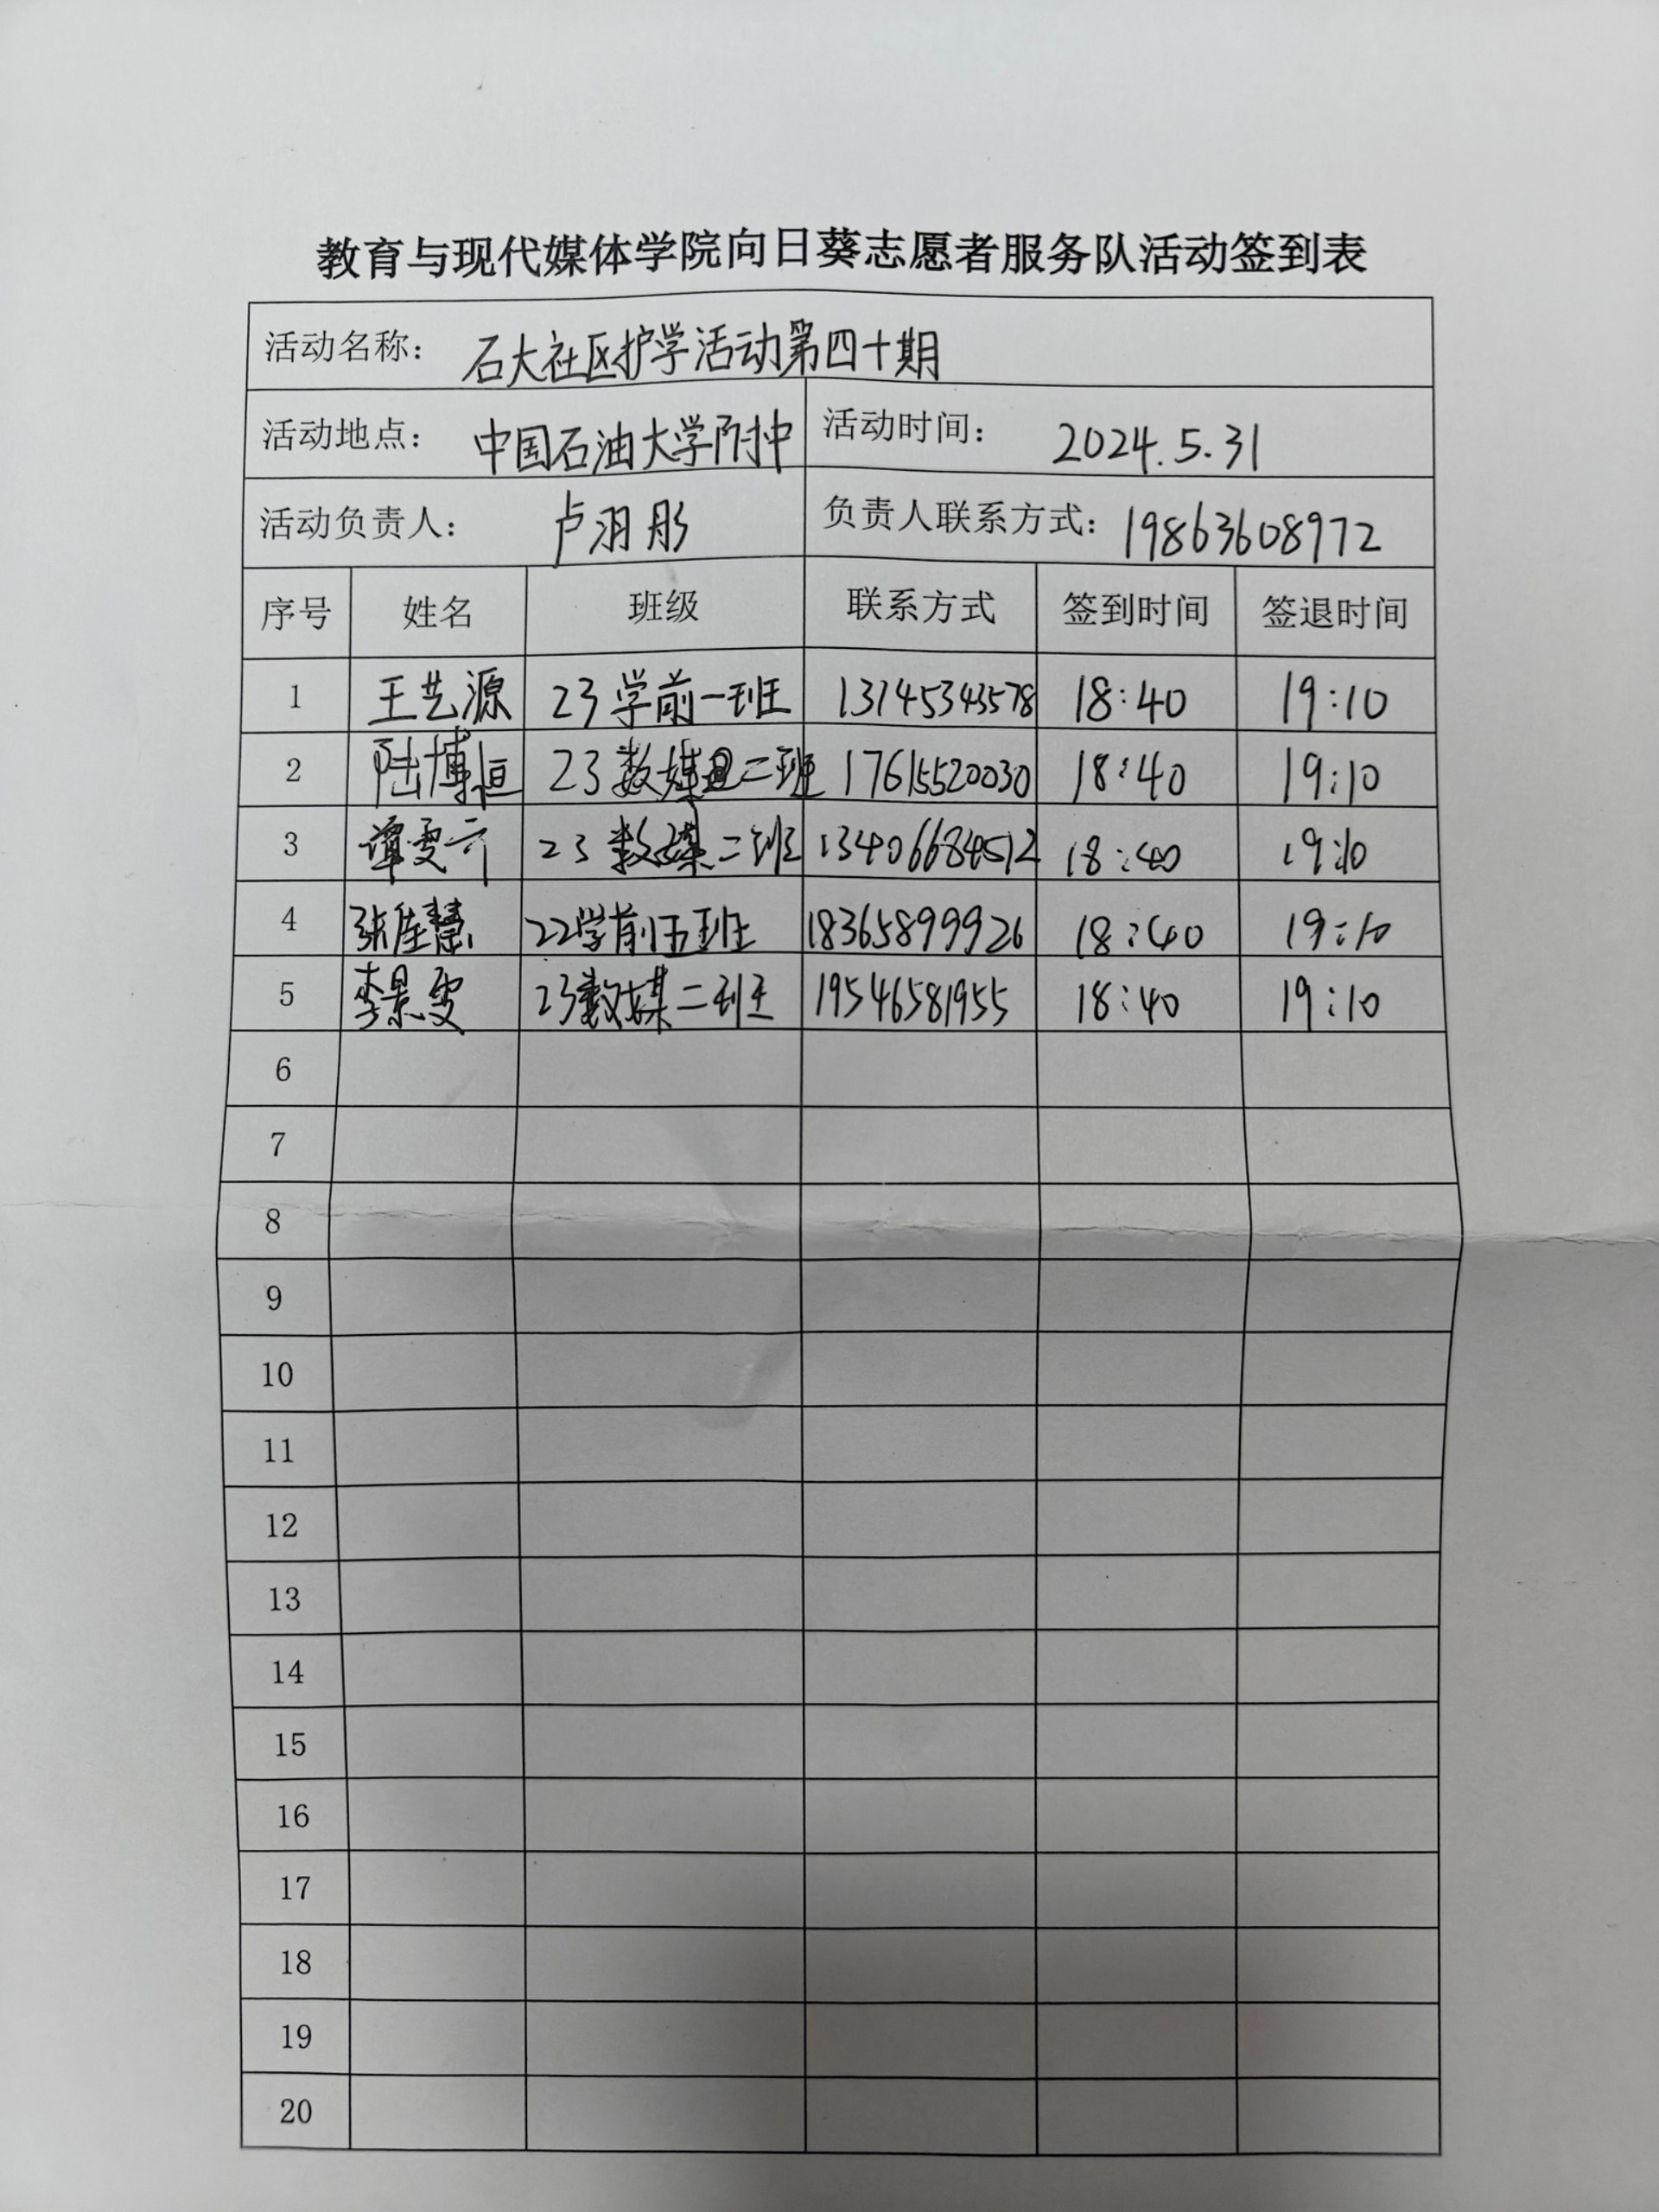 教育与现代媒体学院向日葵志愿者服务队活动签到表
活动名称： 石大社区护学活动第四十期
活动地点： 中国石油大学附中 活动时间： 2024.5.31
活动负责人： 卢羽彤 负责人联系方式： 19863608972
序号 姓名 班级 联系方式 签到时间 签退时间
1 王艺源 23学前一班 13145343578 18:40 19:10
2 陆博恒 23数媒二班 17615520030 18:40 19:10
3 谭雯 23数媒二班 13406684512 18:40 19:10
4 张佳慧 22学前五班 18365899926 18:40 19:10
5 李景雯 23数媒二班 19546581955 18:40 19:10
6
7
8
9
10
11
12
13
14
15
16
17
18
19
20